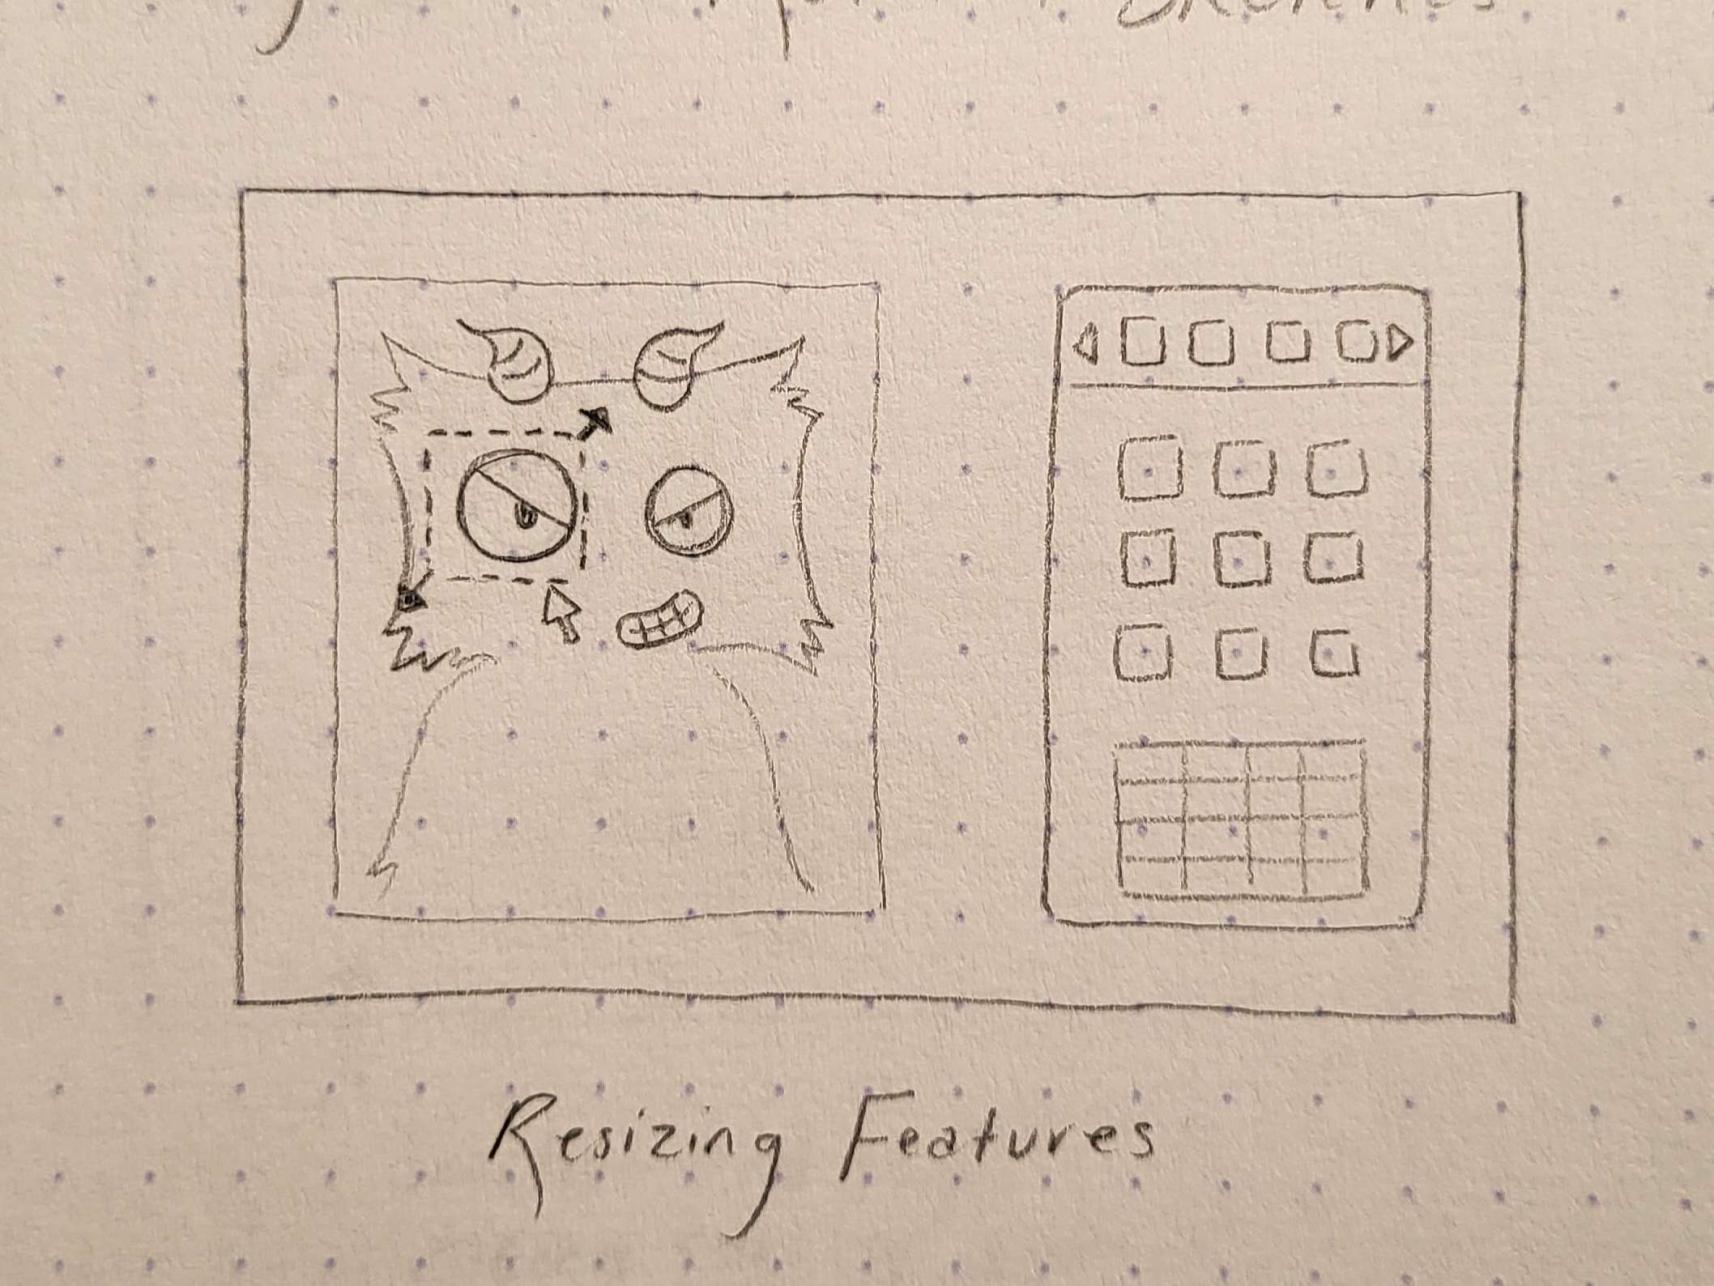 Sketches
Resizing Features